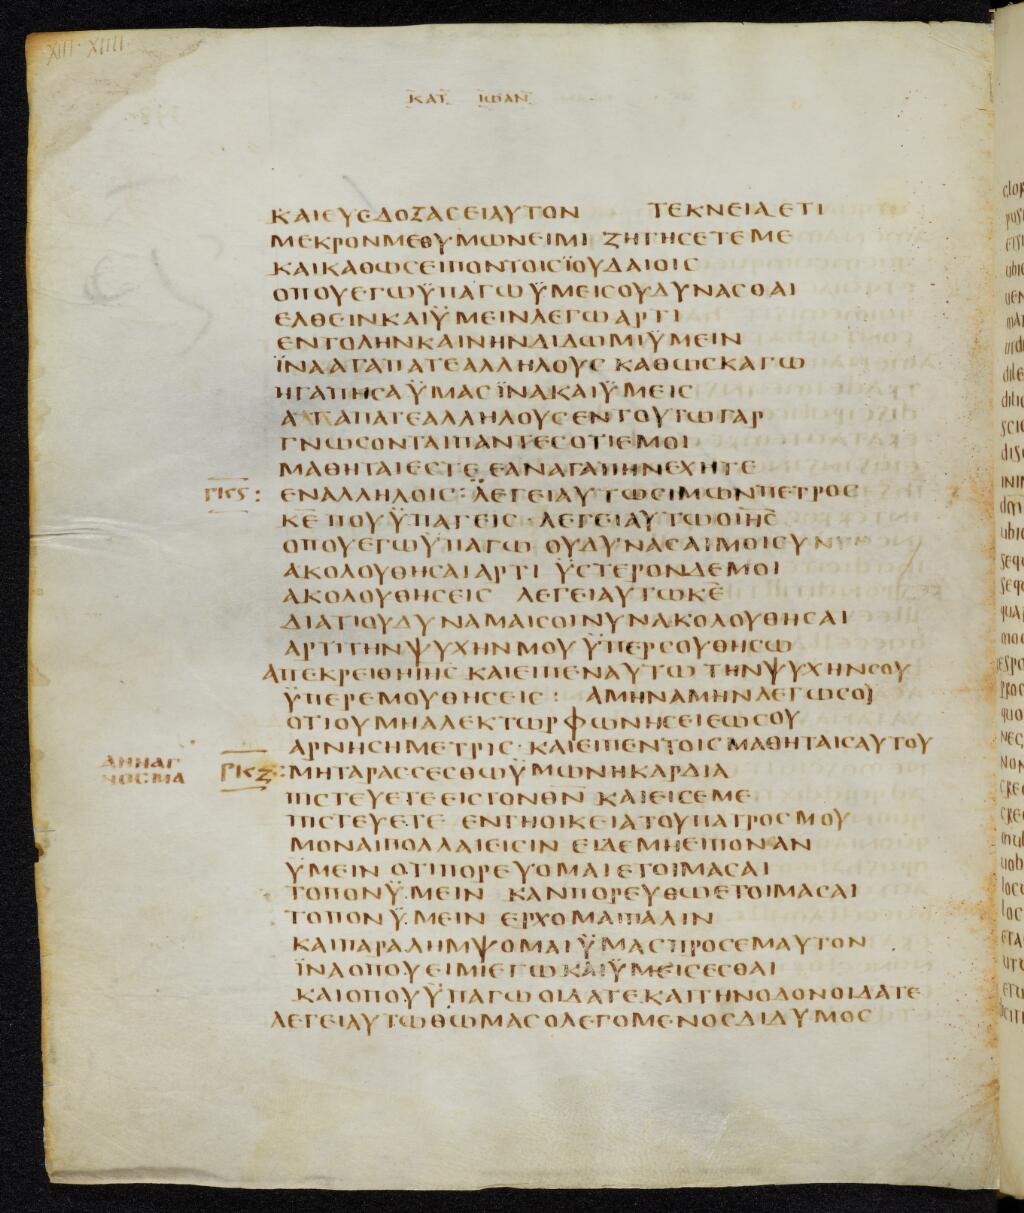 XIII · XIIII
ΚΑΤ ΙΩΑΝ
ΚΑΙΕΥΕΔΟΞΑΣΕΙΑΥΤΟΝ ΤΕΚΝΕΙΑ ΕΤΙ
ΜΕΚΡΟΝΜΕΘΥΜΩΝΕΙΜΙ ΖΗΤΗΣΕΤΕΜΕ
ΚΑΙΚΑΘΩΣΕΙΠΟΝΤΟΙΣΪΟΥΔΑΙΟΙΣ
ΟΠΟΥΕΓΩΫΠΑΓΩΫΜΕΙΣΟΥΔΥΝΑΣΘΑΙ
ΕΛΘΕΙΝΚΑΙΫΜΕΙΝΛΕΓΩΑΡΤΙ
ΕΝΤΟΛΗΝΚΑΙΝΗΝΔΙΔΩΜΙΫΜΕΙΝ
ΪΝΑΑΓΑΠΑΤΕΑΛΛΗΛΟΥΣ ΚΑΘΩΣΚΑΓΩ
ΗΓΑΠΗΣΑΫΜΑΣΪΝΑΚΑΙΫΜΕΙΣ
ΑΓΑΠΑΤΕΑΛΛΗΛΟΥΣΕΝΤΟΥΤΩΓΑΡ
ΓΝΩΣΟΝΤΑΙΠΑΝΤΕΣΟΤΙΕΜΟΙ
ΜΑΘΗΤΑΙΕΣΤΕ ΕΑΝΑΓΑΠΗΝΕΧΗΤΕ
ΡΚϚ : ΕΝΑΛΛΗΛΟΙΣ : ΛΕΓΕΙΑΥΤΩΣΙΜΩΝΠΕΤΡΟΣ
ΚΕ̅ ΠΟΥΫΠΑΓΕΙΣ · ΛΕΓΕΙΑΥΤΩΟΙΗΣ̅
ΟΠΟΥΕΓΩΫΠΑΓΩ ΟΥΔΥΝΑΣΑΙΜΟΙΣΥΝΥΝ
ΑΚΟΛΟΥΘΗΣΑΙΑΡΤΙ ΫΣΤΕΡΟΝΔΕΜΟΙ
ΑΚΟΛΟΥΘΗΣΕΙΣ ΛΕΓΕΙΑΥΤΩΚΕ̅
ΔΙΑΤΙΟΥΔΥΝΑΜΑΙΣΟΙΝΥΝΑΚΟΛΟΥΘΗΣΑΙ
ΑΡΤΙΤΗΝΨΥΧΗΝΜΟΥΫΠΕΡΣΟΥΘΗΣΩ
ΑΠΕΚΡΕΙΘΗΙΗΣ ΚΑΙΕΙΠΕΝΑΥΤΩ ΤΗΝΨΥΧΗΝΣΟΥ
ΫΠΕΡΕΜΟΥΘΗΣΕΙΣ : ΑΜΗΝΑΜΗΝΛΕΓΩΣΟΙ
ΟΤΙΟΥΜΗΑΛΕΚΤΩΡΦΩΝΗΣΕΙΕΩΣΟΥ
ΑΡΝΗΣΗΜΕΤΡΙΣ · ΚΑΙΕΙΠΕΝΤΟΙΣΜΑΘΗΤΑΙΣΑΥΤΟΥ
ΑΝΝΑΓ
ΝΟΣΜΑ
ΡΚΖ : ΜΗΤΑΡΑΣΣΕΣΘΩΫΜΩΝΗΚΑΡΔΙΑ
ΠΙΣΤΕΥΕΤΕΕΙΣΤΟΝΘΝ̅ ΚΑΙΕΙΣΕΜΕ
ΠΙΣΤΕΥΕΤΕ ΕΝΤΗΟΙΚΕΙΑΤΟΥΠΑΤΡΟΣΜΟΥ
ΜΟΝΑΙΠΟΛΛΑΙΕΙΣΙΝ ΕΙΔΕΜΗΕΙΠΟΝΑΝ
ΫΜΕΙΝ ΟΤΙΠΟΡΕΥΟΜΑΙΕΤΟΙΜΑΣΑΙ
ΤΟΠΟΝΫΜΕΙΝ ΚΑΝΠΟΡΕΥΘΩΕΤΟΙΜΑΣΑΙ
ΤΟΠΟΝΫΜΕΙΝ ΕΡΧΟΜΑΙΠΑΛΙΝ
ΚΑΙΠΑΡΑΛΗΜΨΟΜΑΙΫΜΑΣΠΡΟΣΕΜΑΥΤΟΝ
ΪΝΑΟΠΟΥΕΙΜΙΕΓΩΚΑΙΫΜΕΙΣΕΣΘΑΙ
ΚΑΙΟΠΟΥΫΠΑΓΩΟΙΔΑΤΕΚΑΙΤΗΝΟΔΟΝΟΙΔΑΤΕ
ΛΕΓΕΙΑΥΤΩΘΩΜΑΣΟΛΕΓΟΜΕΝΟΣΔΙΔΥΜΟΣ